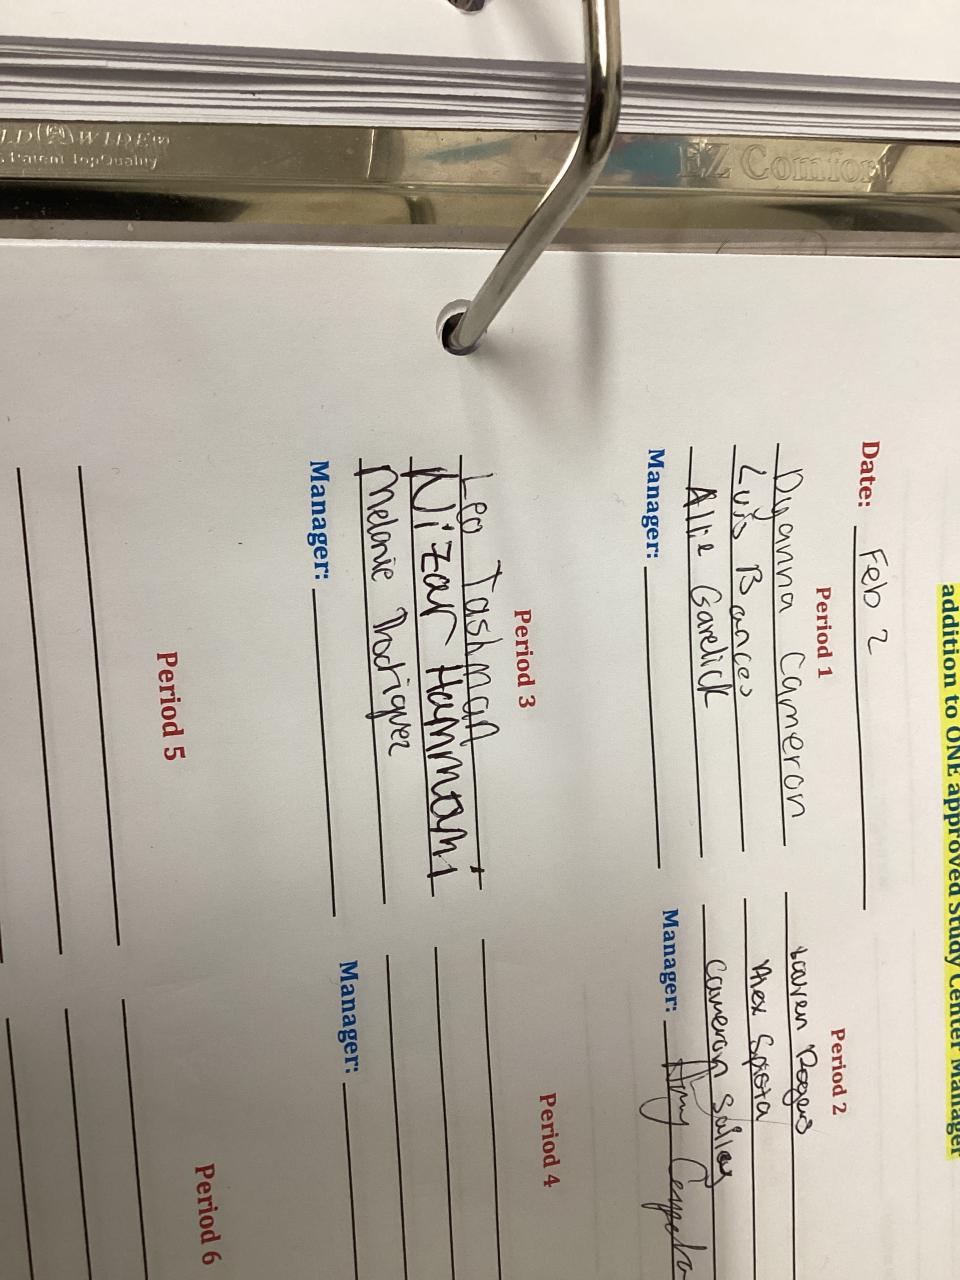 LD WIDE
Patent TopQuality
EZ Comfort
addition to ONE approved Study Center Manager
Date: Feb 2
Period 1
Dyanna Cameron
Luis Bances
Allie Garelick
Manager:
Period 2
Lauren Rogers
Alex Spota
Cameron
Manager: Amy
Period 3
Leo Tashman
Nizar Hammami
Melanie Rodriguez
Manager:
Period 4
Manager:
Period 5
Period 6